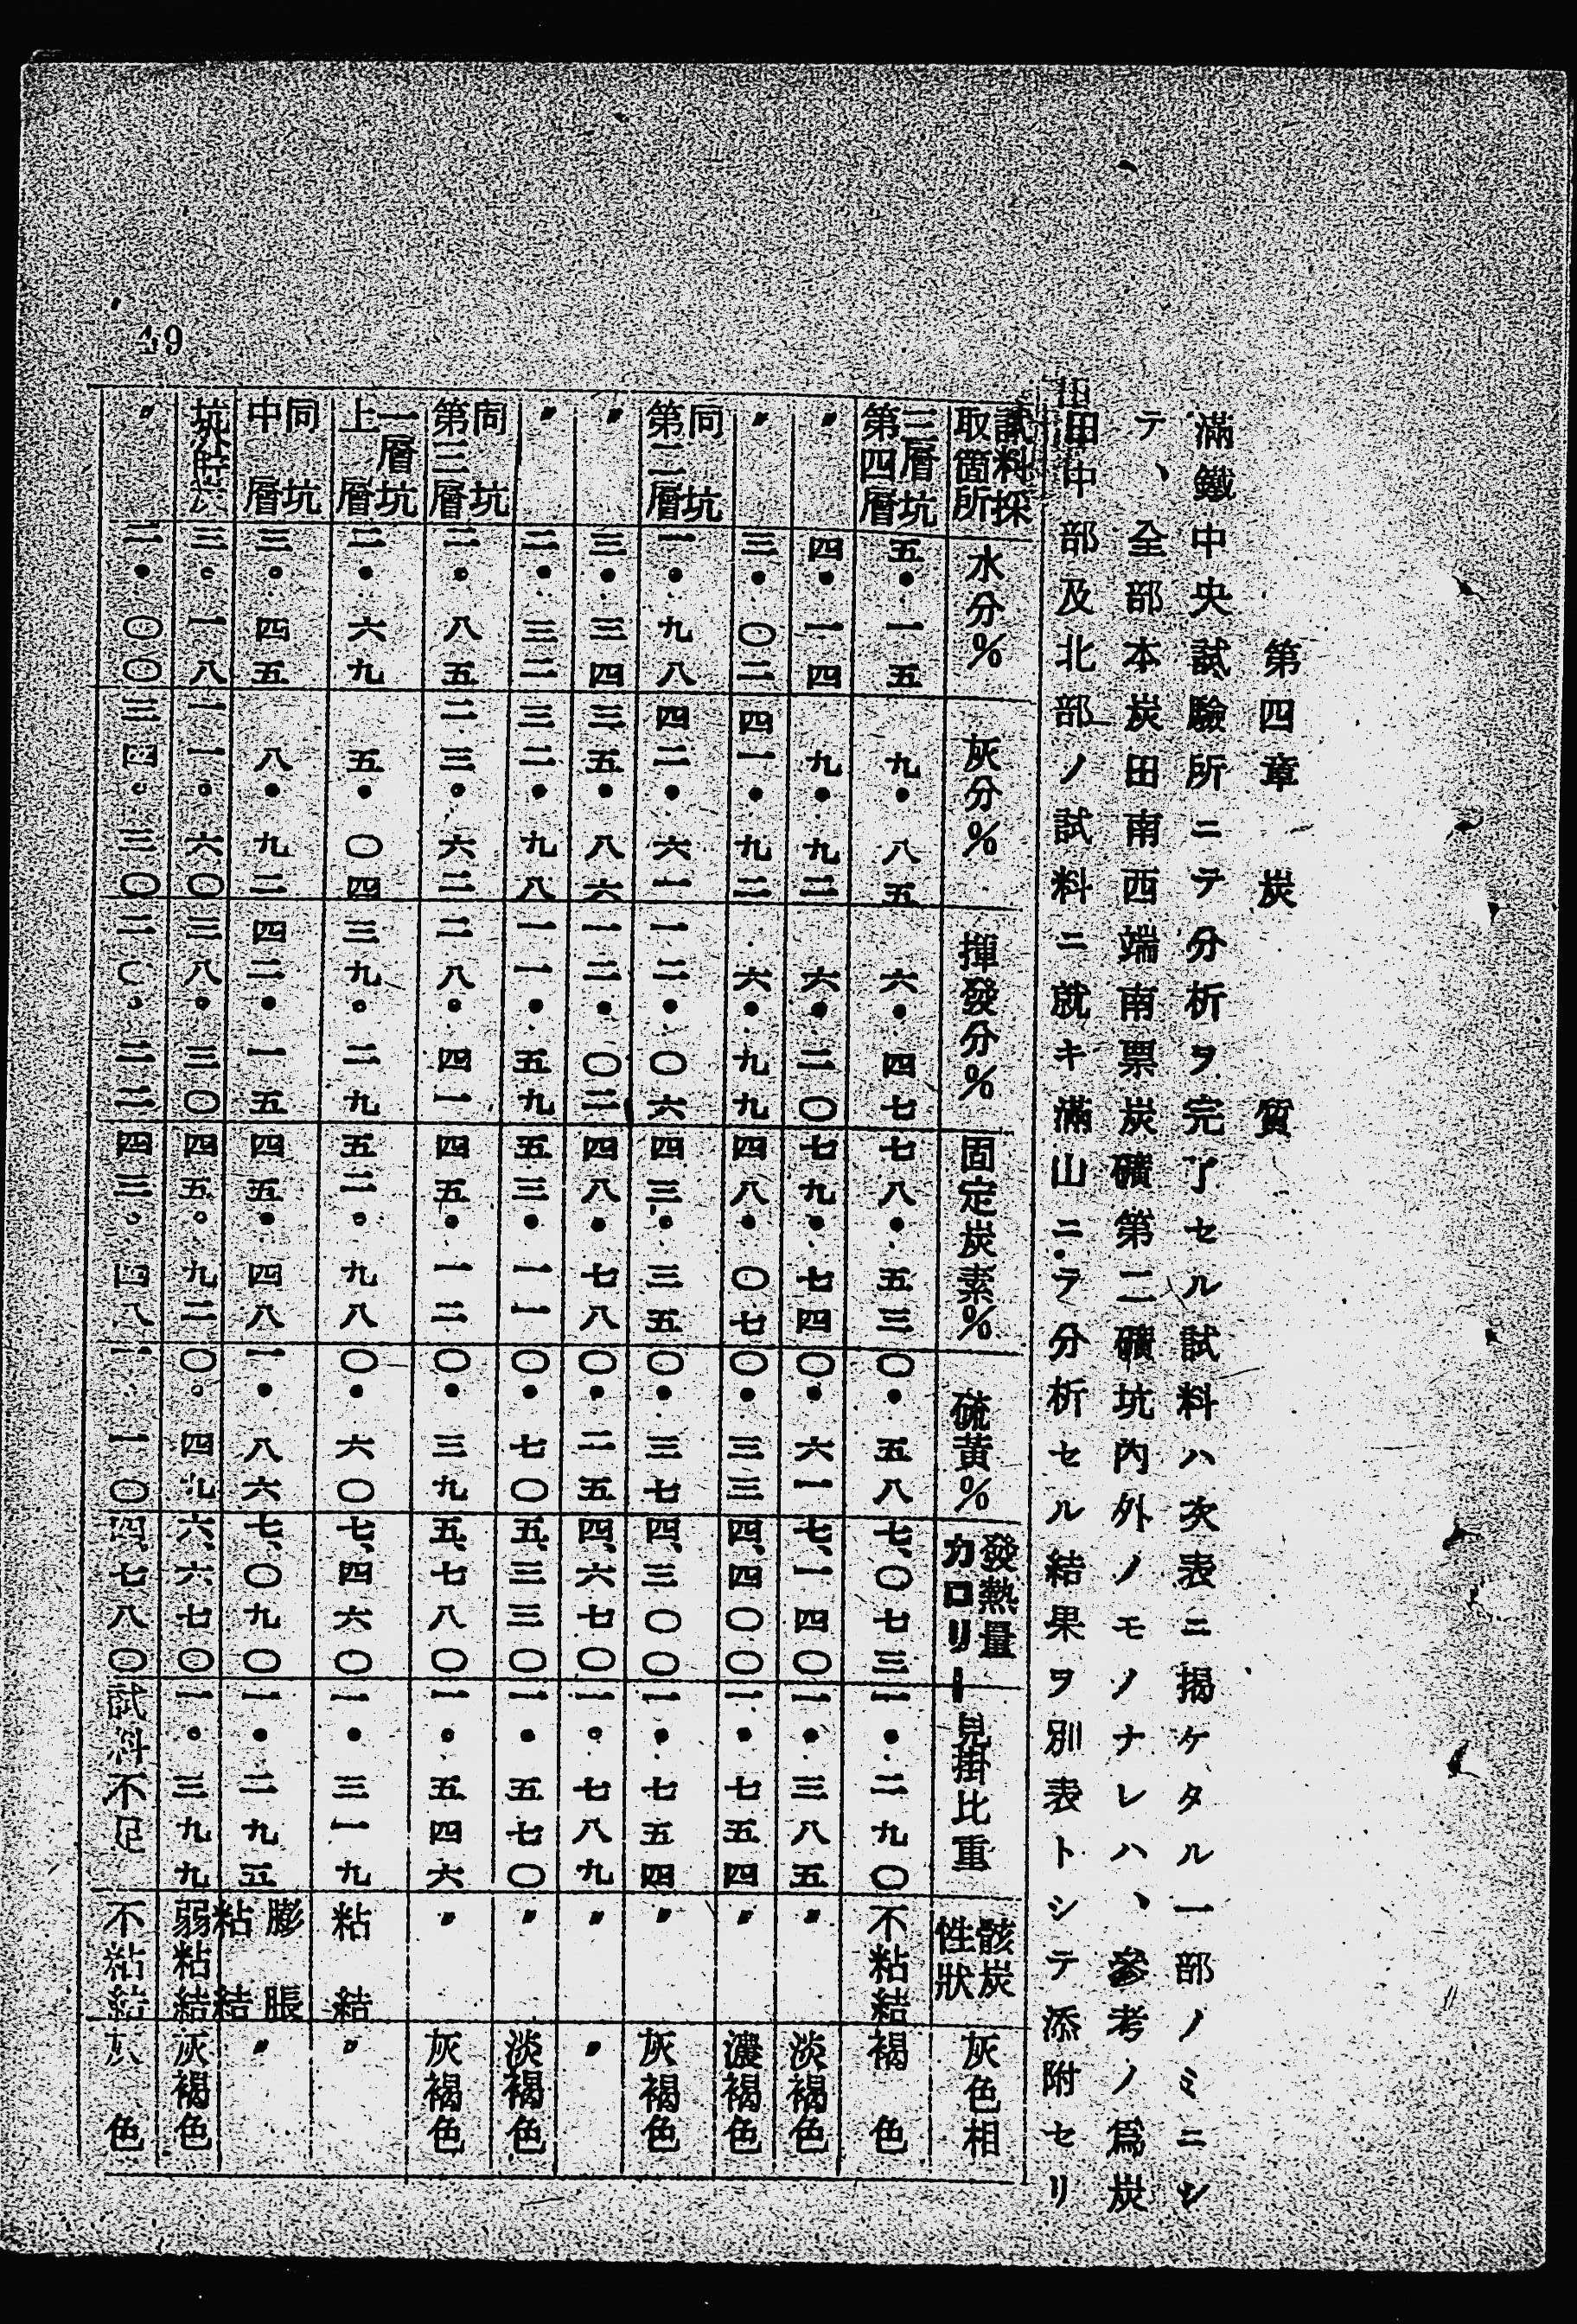 第四章　炭　質
滿鐵中央試驗所ニテ分析ヲ完了セル試料ハ次表ニ揭ケタル一部ノミニシ
テ、全部本炭田南西端南票炭礦第二礦坑內外ノモノナレハ、參考ノ爲炭
田中部及北部ノ試料ニ就キ滿山ニテ分析セル結果ヲ別表トシテ添附セリ
試料採取箇所　水分%　灰分%　揮發分%　固定炭素%　硫黃%　發熱量カロリー　見掛比重　骸炭性狀　灰色相
三層坑第四層　五・一五　九・八五　六・四七　七八・五三　〇・五八　七、〇七三　一・二九〇　不粘結　褐色
〃　四・一四　九・九二　六・二〇　七九・七四　〇・六一　七、一四〇　一・三八五　〃　淡褐色
〃　三・〇二　四一・九二　六・九九　四八・〇七　〇・三三　四、四〇〇　一・七五四　〃　濃褐色
同坑第二層　一・九八　四二・六一　一二・〇六　四三・三五　〇・三七　四、三〇〇　一・七五四　〃　灰褐色
〃　三・三四　三五・八六　一二・〇二　四八・七八　〇・二五　四、六七〇　一・七八九　〃　〃
〃　二・三二　三二・九八　一一・五九　五三・一一　〇・七〇　五、三三〇　一・五七〇　〃　淡褐色
同坑第三層　二・八五　二三・六二　二八・四一　四五・一二　〇・三九　五、七八〇　一・五四六　〃　灰褐色
一層坑上層　二・六九　五・〇四　三九・二九　五二・九八　〇・六〇　七、四六〇　一・三一九　粘結　〃
同坑中層　三・四五　八・九二　四二・一五　四五・四八　一・八六　七、〇九〇　一・二九五　膨脹粘結　〃
坑外　三・一八　一一・六〇　三八・三〇　四五・九二　〇・四九　六、六七〇　一・三九九　弱粘結　灰褐色
〃　二・〇〇　三四・三〇　二〇・二二　四三・四八　一・一〇　四、七八〇　試料不足　不粘結　灰色